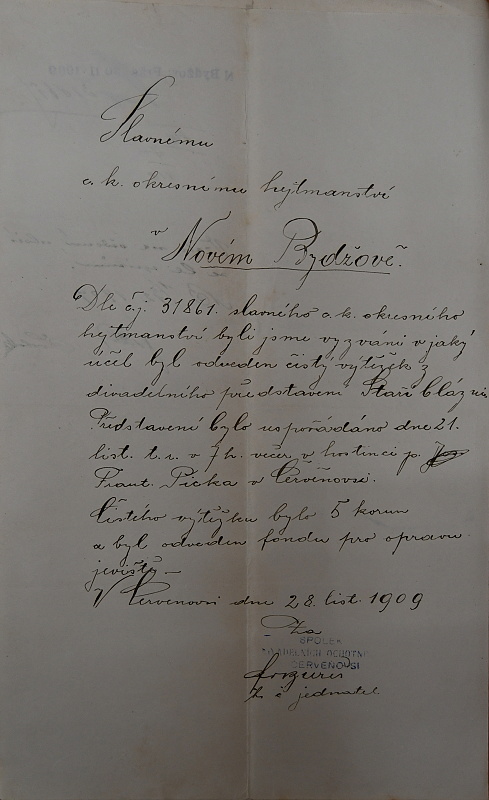 Slavnému
c. k. okresnímu hejtmanství
v
Novém Bydžově.
Dle č.j. 31861. slavného c. k. okresného
hejtmanství byli jsme vyzváni v jaký
účel byl odveden čistý výtěžek z
divadelního představení Staří blázni.
Představení bylo uspořádáno dne 21.
list. t. r. v 7 h. večer, v hostinci p.
Frant. Picka v Červěňovsi.
Čistého výtěžku bylo 5 korun
a byl odveden fondu pro opravu
jeviště. —
V Červenovsi dne 28. list. 1909
Za
SPOLEK
DIVADELNÍCH OCHOTN
ČERVENOVSI
t. č. jednatel